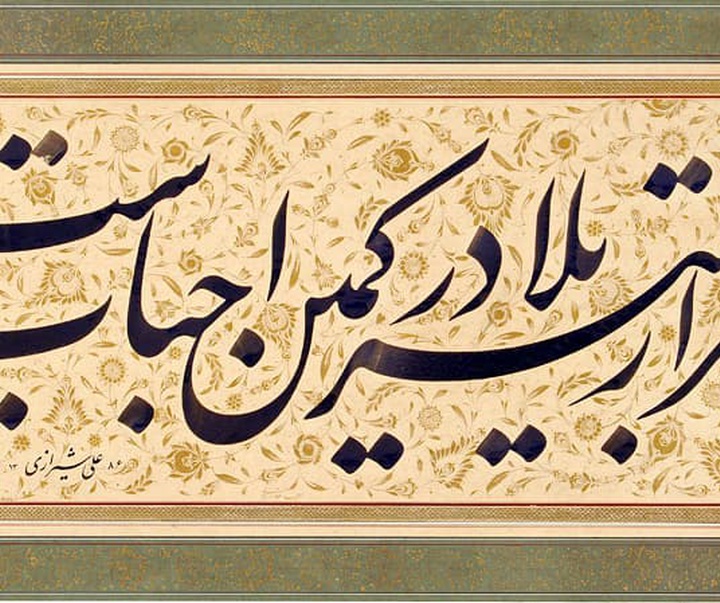 تیر بلا در کمین احباب است
۸۶ علی شیرازی ۱۳